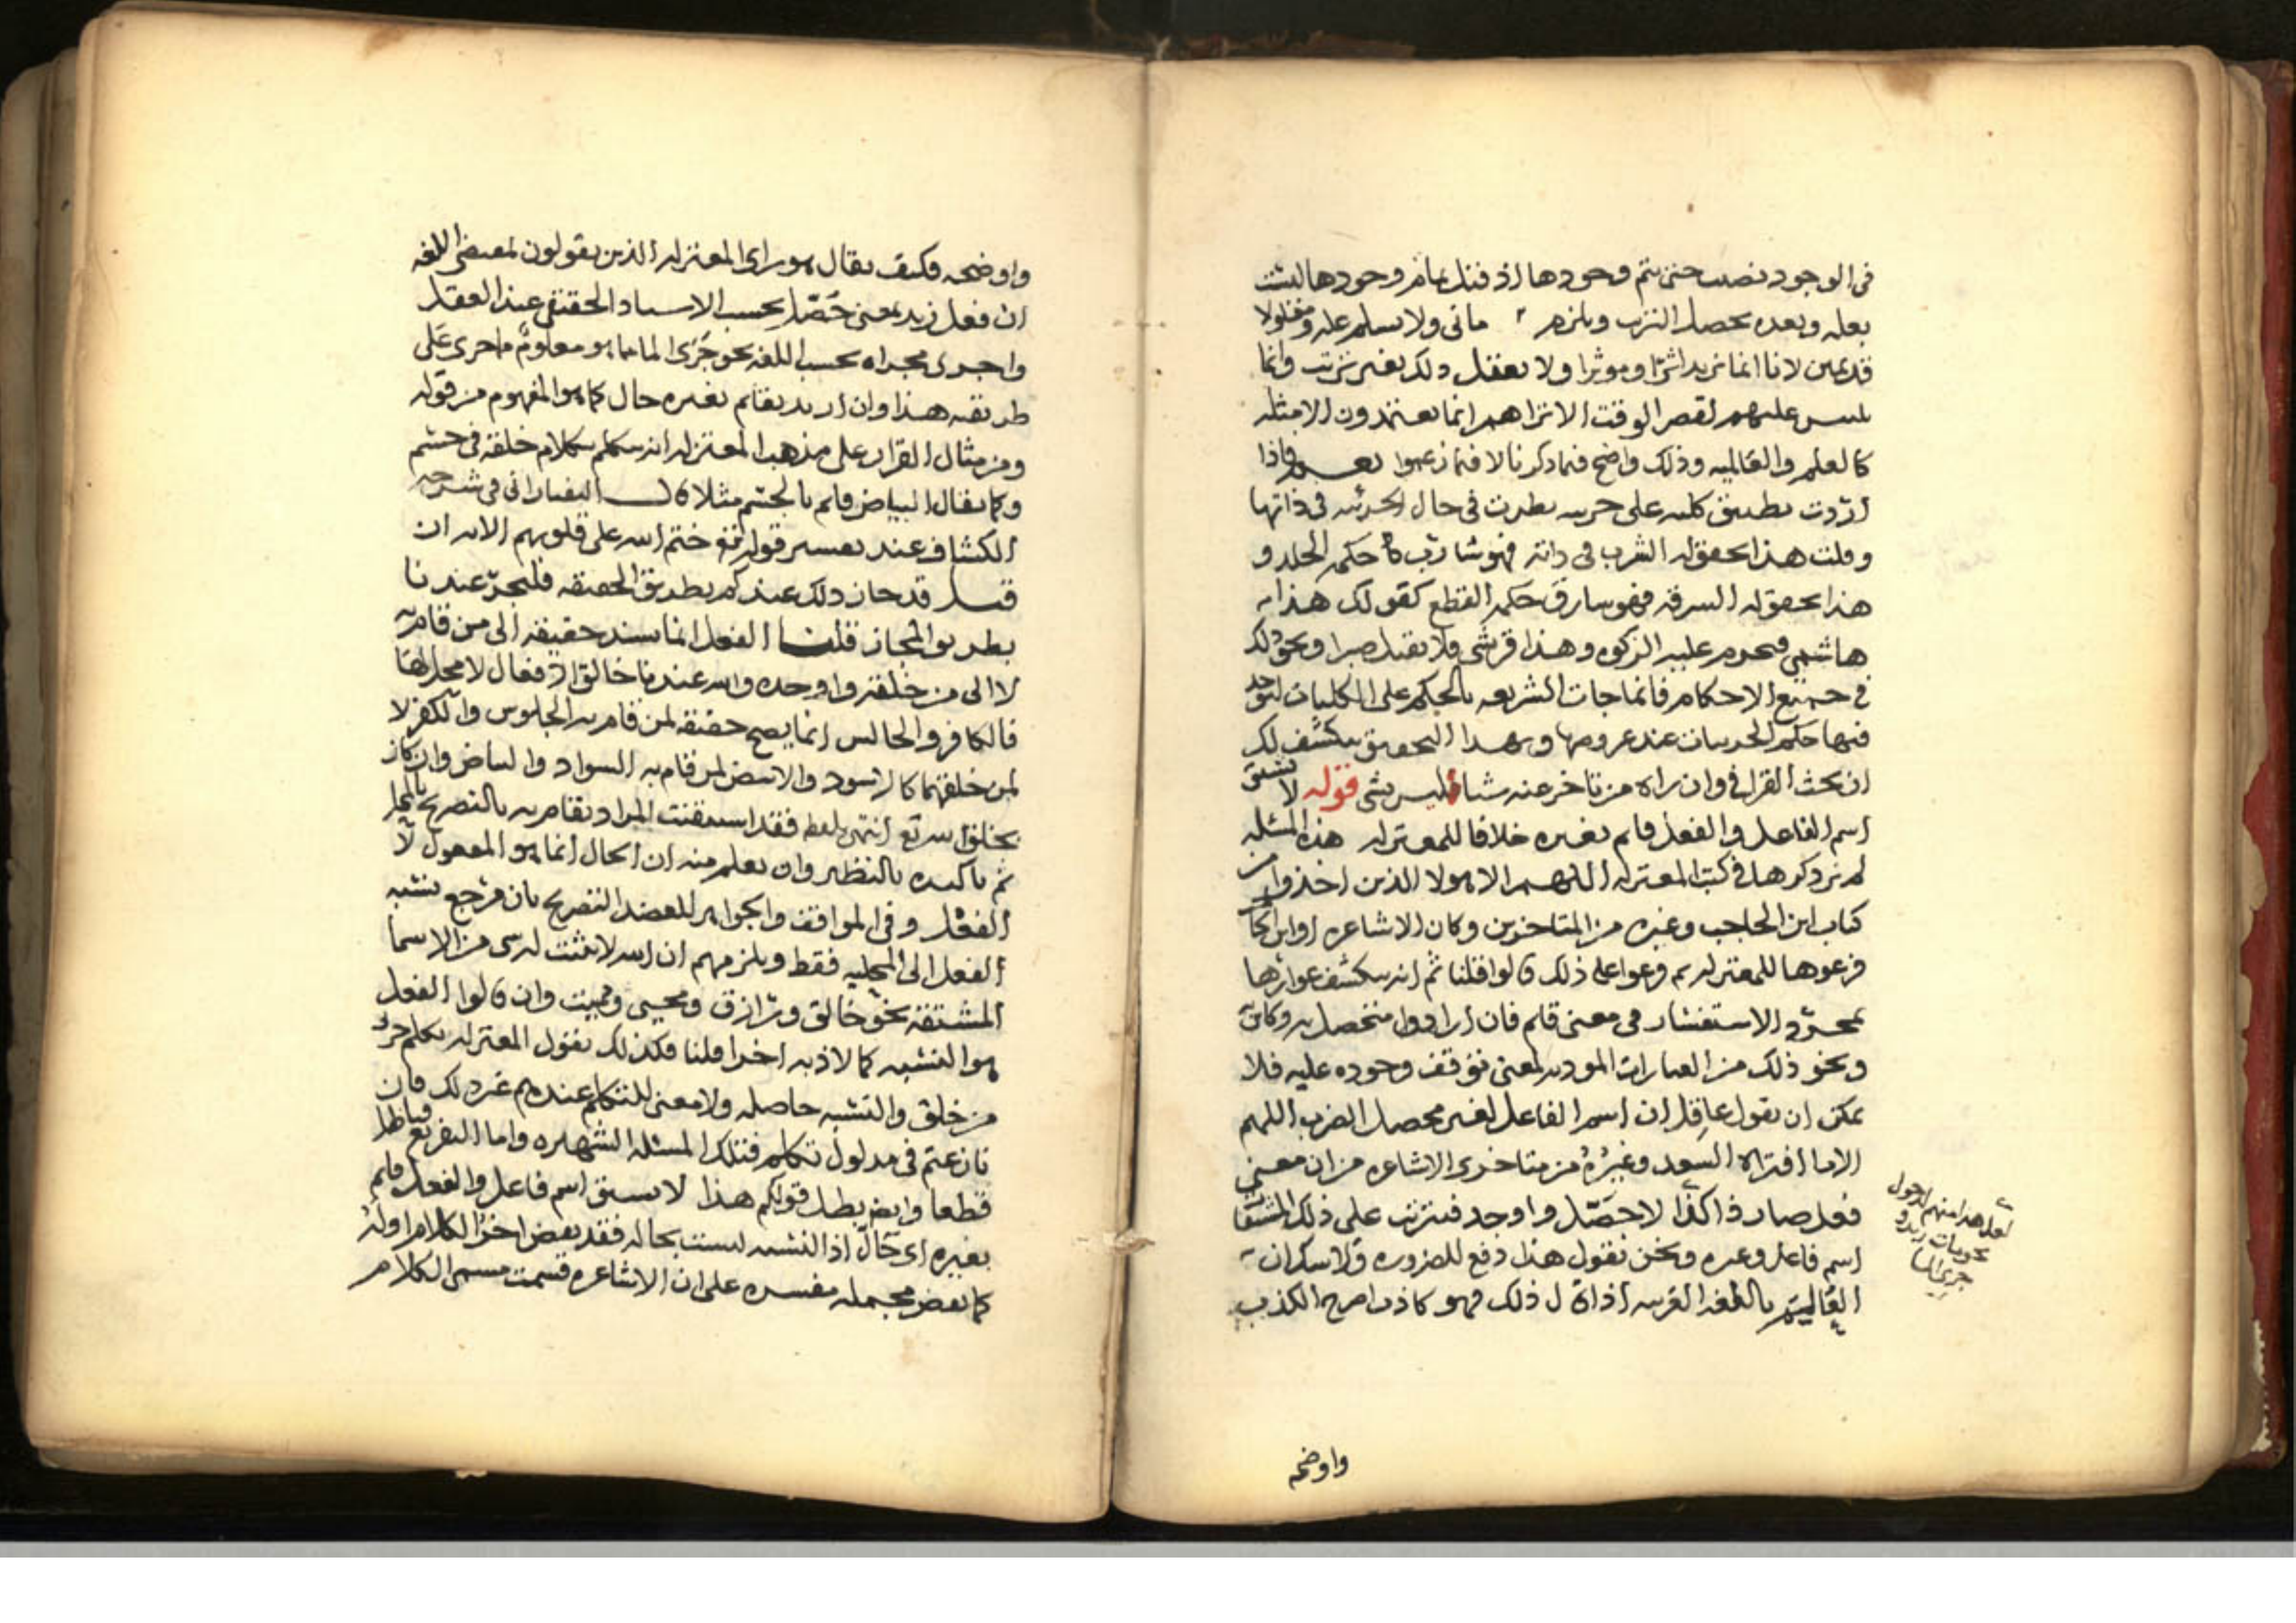 في الوجود نصب حتى يتم وجودها اذ قبل تمام وجودها ليست
بعله وبعده يحصل الترتب ويلزم ما في ولا يسلم عله ومعلولا
قديمين لانا انما نريد اثرا وموثرا ولا يعقل ذلك بغير ترتب وانما
يلبس عليهم لقصر الوقت الا تراهم انما يعتمدون الامثله
كالعلم والعالميه وذلك واضح فيما ذكرنا لا فيما زعموا فاذا
اردت تطبيق كليه على جزييه نظرت في حال الجزييه في ذاتها
وقلت هذا تحقق له الشرب في ذاته فهو شارب حكمه الجلد و
هذا تحقق له السرقه فهو سارق حكمه القطع كقولك هذا
هاشمي فيحرم عليه الزكوه وهذا قرشي فلا يقتل صبرا ونحو ذلك
في جميع الاحكام فانما جات الشريعه بالحكم على الكليات ليوخذ
منها حكم الجزييات عند عروضها وبهذا التحقيق ينكشف لك
ان بحث القرافي وان راه من تاخر عنه شيا فليس بشي قوله لا يشتق
اسم الفاعل والفعل قايم بغيره خلافا للمعتزله هذه المسئله
لم نر ذكرها في كتب المعتزله اللهم الا هولا الذين اخذوا من
كتاب ابن الحاجب وغيره من المتاخرين وكان الاشاعره او ابن الحاجب
فرعوها للمعتزله ثم فرعوا على ذلك قالوا قلنا ثم انه ينكشف عوارها
بمجرد الاستفسار في معنى قايم فان ارادوا متحصل به وكاين
ونحو ذلك من العبارات الموديه لمعنى توقف وجوده عليه فلا
يمكن ان يقول عاقل ان اسم الفاعل لغير محصل الضرب اللهم
الا ما افتراه السعد وغيره من متاخري الاشاعره من ان معنى
فعل صار ذا كذا لا حصّل واوجد فيترتب على ذلك المشتقات
اسم فاعل وغيره ونحن نقول هذا دفع للضروره ولا سكران
بالغة العربيه اذا قال ذلك فهو كاذب اصرح الكذب
لعل هذا منهم
جري الما
واوضحه
واوضحه فكيف يقال هو راي المعتزله الذين يقولون بمقتضى اللغه
ان فعل زيد بمعنى حَصّل بحسب الاسناد الحقيقي عند العقل
واجرى مجراه بحسب اللغه نحو جَرَى الما مما هو معلوم ما جرى على
طريقه هذا وان اريد بقايم بغيره حال كما هو المفهوم من قوله
ومن مثال القران على مذهب المعتزله انه متكلم بكلام خلقه في جسم
وكما يقال البياض قايم بالجسم مثلا قال التفتازاني في شرحه
الكشاف عند تفسير قوله تعالى ختم الله على قلوبهم الايه ان
قيل قد جاز ذلك عندكم بطريق الحقيقه فليجز عندنا
بطريق المجاز قلنا الفعل انما يسند حقيقه الى من قام به
لا الى من خلقه واوجده والله عندنا خالق الافعال لا محل لها
فالكافر والجالس انما يصح حقيقه لمن قام به الجلوس والكفر لا
لمن خلقهما كالاسود والابيض لمن قام به السواد والبياض وان كان
بخلق الله تع انتهى بلفظه فقد استيقنت المراد بقام به بالتصريح بالمحل
ثم تاكيده بالتنظير وان تعلم منه ان الحال انما هو المفعول لا
الفعل وفي المواقف والجواهر للعضد التصريح بان مرجع نسبه
الفعل الى المحليه فقط ويلزمهم ان الله لا يثبت له شي من الاسما
المشتقه نحو خالق ورازق ومحيي ومميت وان قالوا الفعل
هو النسبه كما لاذ به اخرا قلنا فكذلك يقول المعتزله
من خلق والنسبه حاصله ولا معنى للتكلم عندهم غير ذلك فان
نازعتم في مدلول تكلم فتلك المسئله الشهيره واما التفريع فباطل
قطعا وايض بطل قولكم هذا لا يشتق اسم فاعل والفعل قايم
بغيره اي حَالٌّ اذ النسبه ليست بحاله فقد نقض اخر الكلام اوله
كما نقض مجمله مفسره على ان الاشاعره قسمت مسمى الكلام